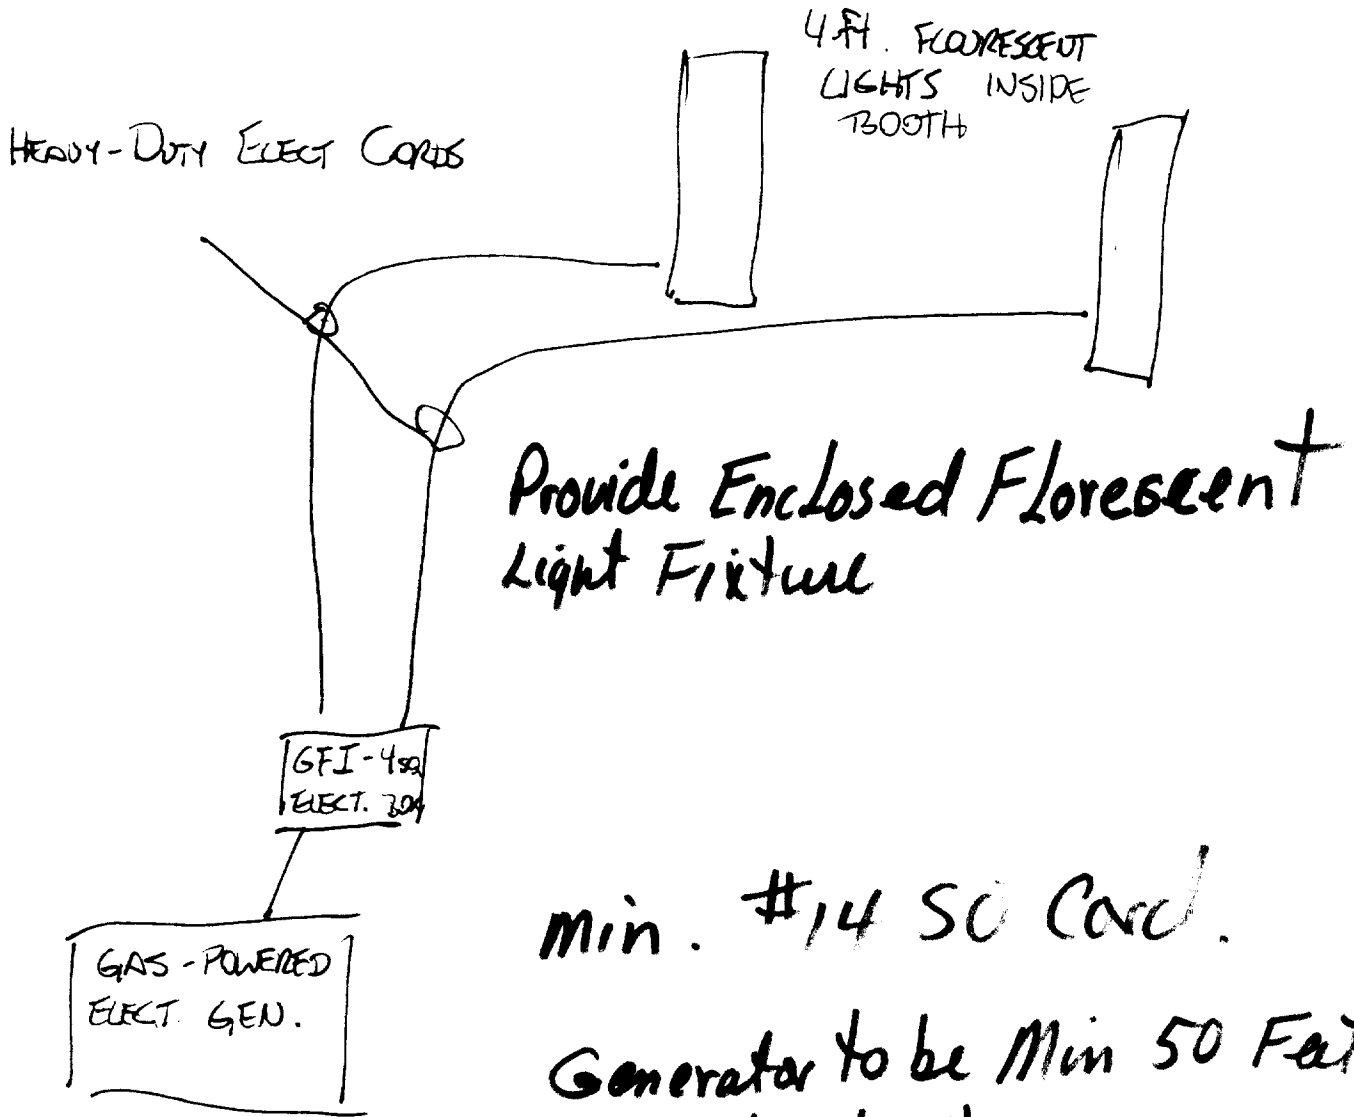 4 Ft. FLOURESCENT
LIGHTS INSIDE
BOOTH
HEAVY-DUTY ELECT CORDS
Provide Enclosed Florescent
Light Fixture
GFI-4 SQ
ELECT. BOX
min. #14 SO Cord.
GAS-POWERED
ELECT. GEN.
Generator to be Min 50 Feet